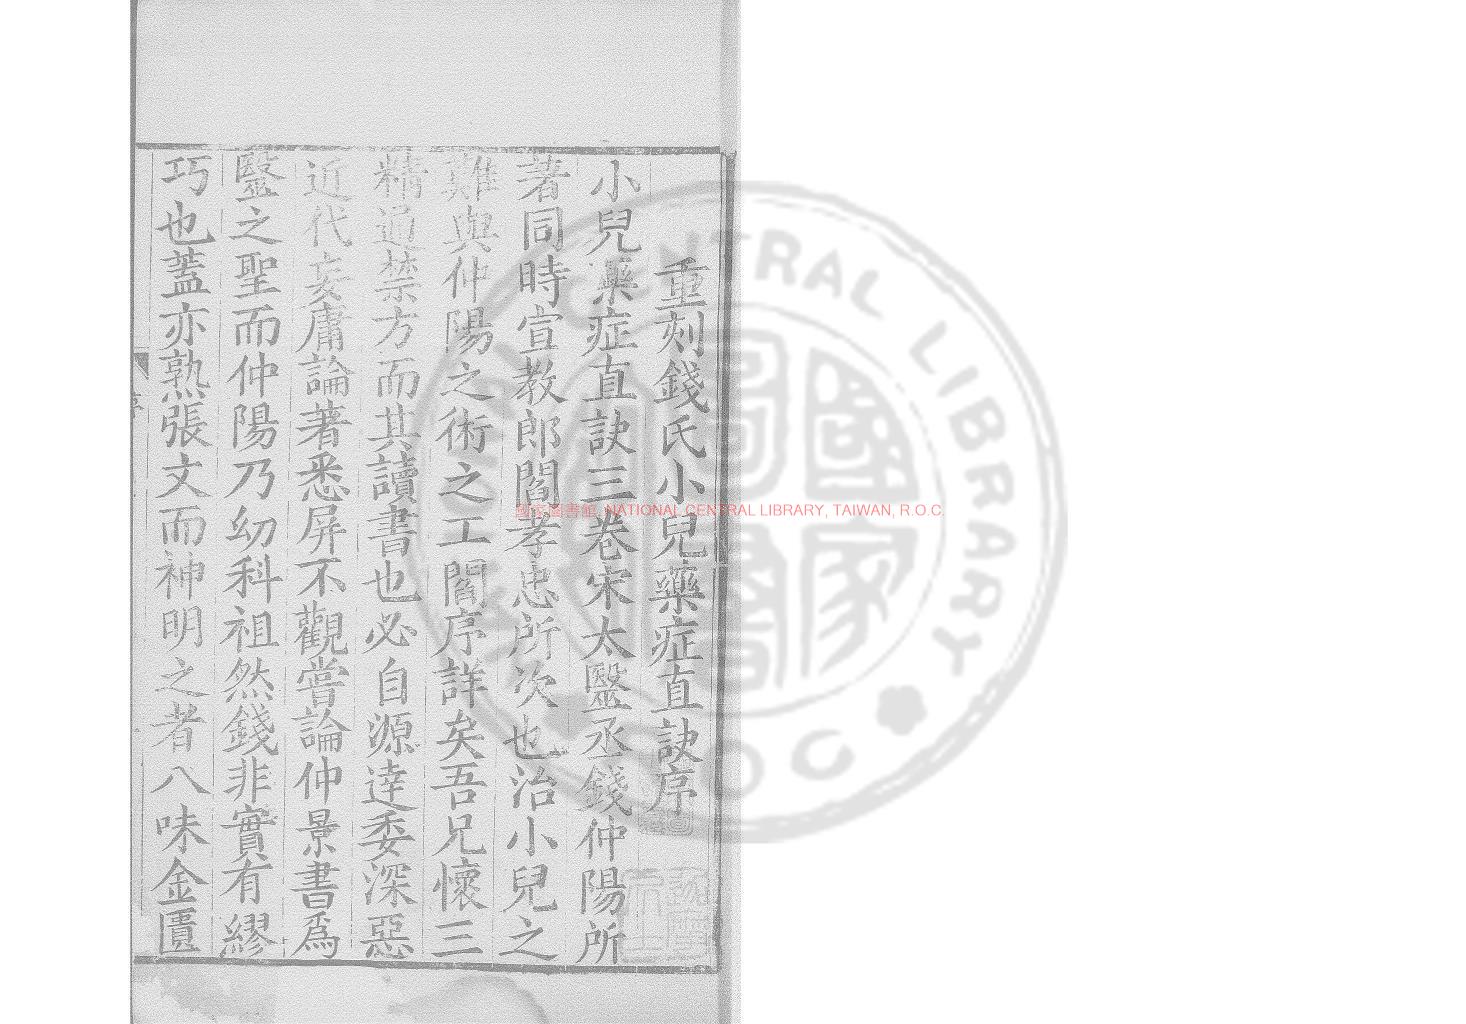 重刻錢氏小兒藥症直訣序
小兒藥症直訣三卷宋太醫丞錢仲陽所
著同時宣教郎閻孝忠所次也治小兒之
難與仲陽之術之工閻序詳矣吾兄懷三
精通禁方而其讀書也必自源達委深惡
近代妄庸論著悉屏不觀嘗論仲景書爲
毉之聖而仲陽乃幼科祖然錢非實有繆
巧也蓋亦熟張文而神明之者八味金匱
國家圖書館, NATIONAL CENTRAL LIBRARY, TAIWAN, R.O.C.